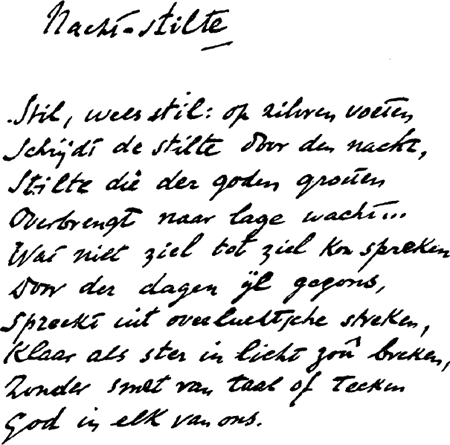 Nacht-stilte
Stil, wees stil: op zilvren voeten
Schrijdt de stilte door den nacht,
Stilte die der goden groeten
Overbrengt naar lage wacht...
Wat niet ziel tot ziel kon spreken
Door der dagen ijl gegons,
Spreekt uit overluchtsche streken,
Klaar als ster in licht zoû breken,
Zonder smet van taal of teeken
God in elk van ons.